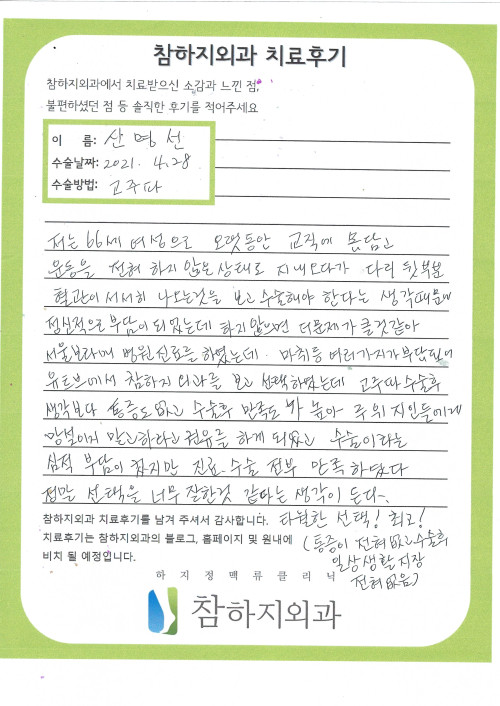 참하지외과 치료후기
참하지외과에서 치료받으신 소감과 느낀 점,
불편하셨던 점 등 솔직한 후기를 적어주세요
이 름: 산명선
수술날짜: 2021. 4.28
수술방법: 고주파
저는 66세 여성으로 오랫동안 교직에 몸담고
운동을 전혀 하지 않은 상태로 지내오다가 다리 뒷부분
혈관이 서서히 나오는것을 보고 수술해야 한다는 생각때문에
정신적으로 부담이 되었는데 하지않으면 더문제가 클것같아
서울보라매 병원 진료를 하였는데. 마취등 여러가지가 부담되어
유트브에서 참하지외과를 보고 선택하였는데 고주파 수술후
생각보다 통증도 없고 수술후 만족도가 높아 주위 지인들에게
망설이지 말고하라고 권유를 하게 되었고 수술이라는
심적 부담이 컸지만 진료 수술 전부 만족 하였다
정말 선택을 너무 잘한것 같다는 생각이 든다.
참하지외과 치료후기를 남겨 주셔서 감사합니다. 탁월한 선택! 최고!
치료후기는 참하지외과의 블로그, 홈페이지 및 원내에 (통증이 전혀 없고 수술후
비치 될 예정입니다. 일상생활 지장
전혀 없음)
하지정맥류클리닉
참하지외과